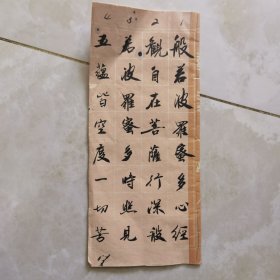 1 2 3 4
般若波羅蜜多心經
觀自在菩薩行深般
若波羅蜜多時照見
五蘊皆空度一切苦